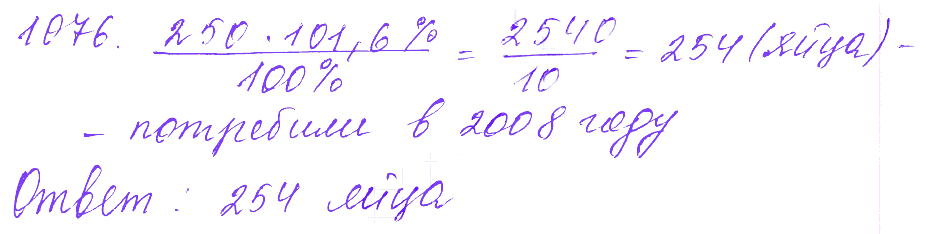 1076. 250 · 101,6% / 100% = 2540 / 10 = 254 (яйца) –
– потребили в 2008 году
Ответ: 254 яйца